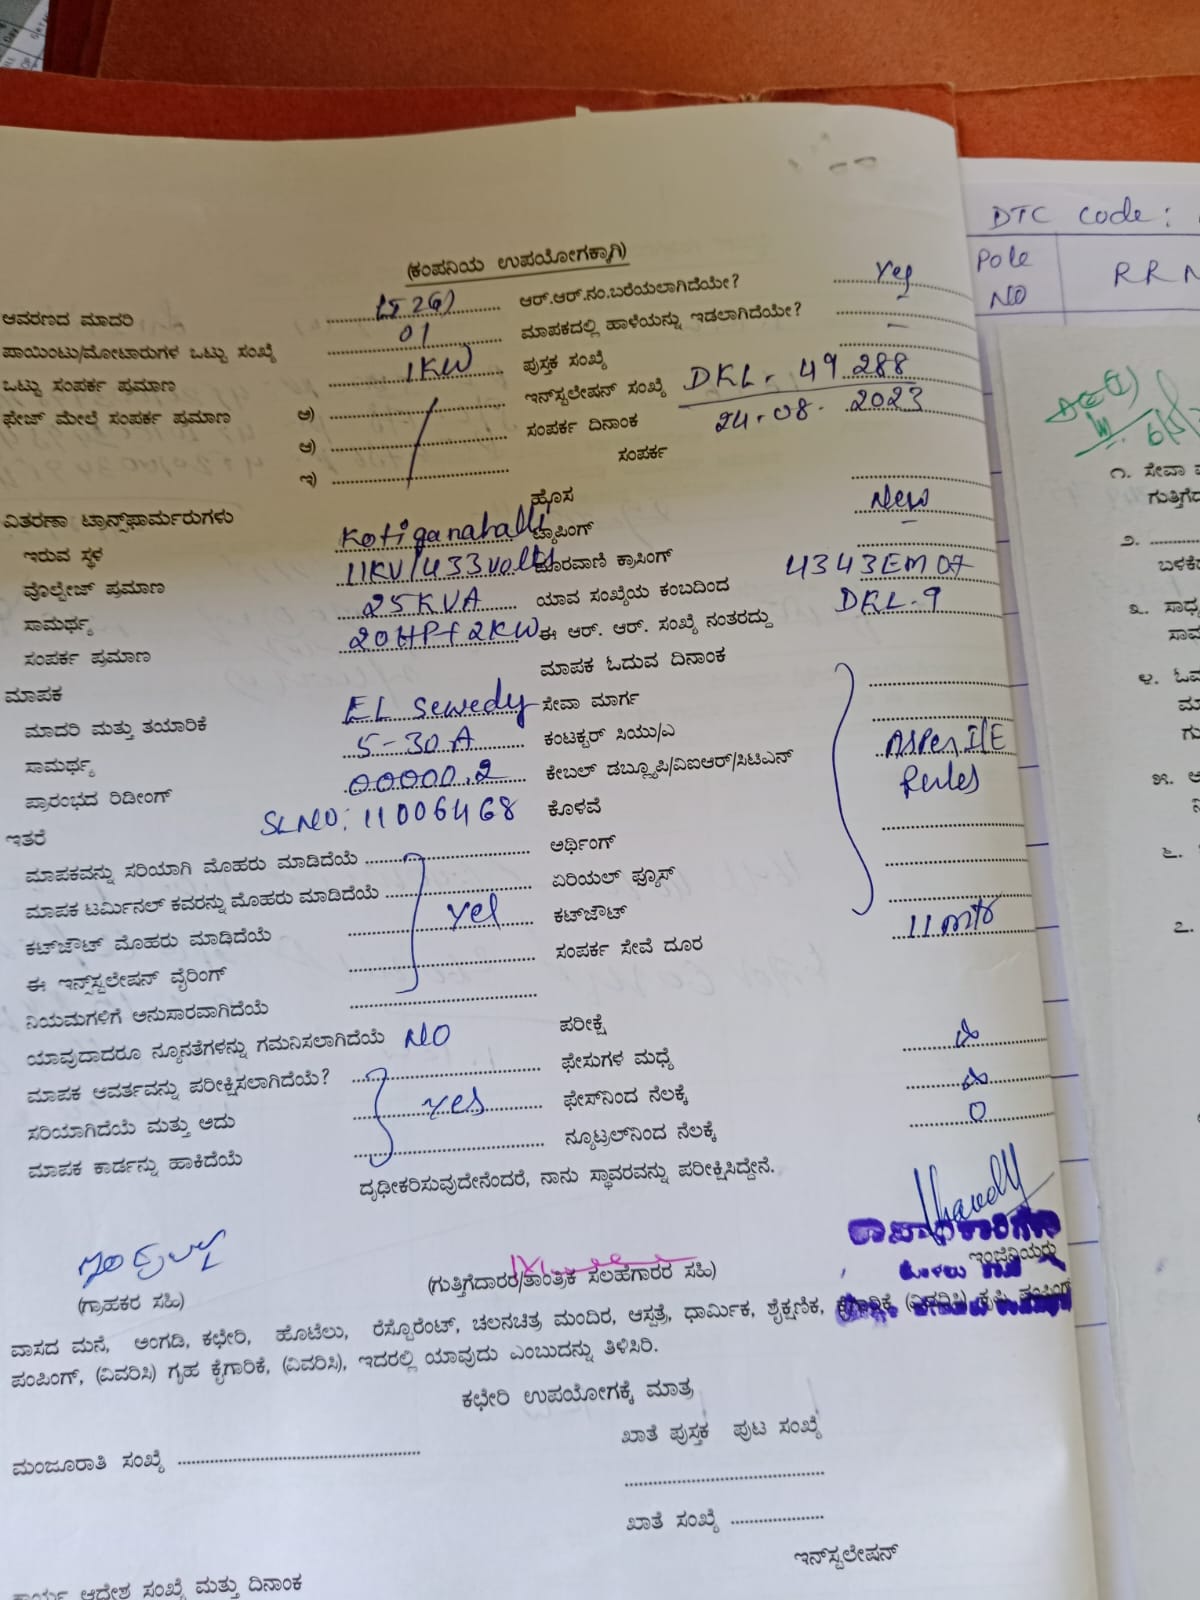 (ಕಂಪನಿಯ ಉಪಯೋಗಕ್ಕಾಗಿ)
ಆವರಣದ ಮಾದರಿ ಆರ್.ಆರ್.ನಂ.ಬರೆಯಲಾಗಿದೆಯೇ? Yes
ಪಾಯಿಂಟು/ಮೋಟಾರುಗಳ ಒಟ್ಟು ಸಂಖ್ಯೆ 01 ಮಾಪಕದಲ್ಲಿ ಹಾಳೆಯನ್ನು ಇಡಲಾಗಿದೆಯೇ? -
ಒಟ್ಟು ಸಂಪರ್ಕ ಪ್ರಮಾಣ 1KW ಪುಸ್ತಕ ಸಂಖ್ಯೆ
ಫೇಜ್ ಮೇಲೆ ಸಂಪರ್ಕ ಪ್ರಮಾಣ ಅ) ಇನ್‌ಸ್ಟಲೇಷನ್ ಸಂಖ್ಯೆ DKL. 49288
ಆ) ಸಂಪರ್ಕ ದಿನಾಂಕ 24.08.2023
ಇ) ಸಂಪರ್ಕ
ವಿತರಣಾ ಟ್ರಾನ್ಸ್‌ಫಾರ್ಮರುಗಳು ಹೊಸ New
ಇರುವ ಸ್ಥಳ Kotiganahalli ಟ್ಯಾಪಿಂಗ್
ವೊಲ್ಟೇಜ್ ಪ್ರಮಾಣ 11KV/433volts ದೂರವಾಣಿ ಕ್ರಾಸಿಂಗ್
ಸಾಮರ್ಥ್ಯ 25KVA ಯಾವ ಸಂಖ್ಯೆಯ ಕಂಬದಿಂದ 4343EM07
ಸಂಪರ್ಕ ಪ್ರಮಾಣ 20HP+2KW ಈ ಆರ್. ಆರ್. ಸಂಖ್ಯೆ ನಂತರದ್ದು DKL-9
ಮಾಪಕ ಮಾಪಕ ಓದುವ ದಿನಾಂಕ
ಮಾದರಿ ಮತ್ತು ತಯಾರಿಕೆ EL Sewedy ಸೇವಾ ಮಾರ್ಗ
ಸಾಮರ್ಥ್ಯ 5-30A ಕಂಟಕ್ಟರ್ ಸಿಯು/ಎ Asper IE
ಪ್ರಾರಂಭದ ರಿಡೀಂಗ್ 00000.2 ಕೇಬಲ್ ಡಬ್ಲ್ಯೂಪಿ/ವಿಐಆರ್/ಸಿಟಿಎನ್ Rules
ಇತರೆ SLNO: 11006468 ಕೊಳವೆ
ಮಾಪಕವನ್ನು ಸರಿಯಾಗಿ ಮೊಹರು ಮಾಡಿದೆಯೆ ಅರ್ಥಿಂಗ್
ಮಾಪಕ ಟರ್ಮಿನಲ್ ಕವರನ್ನು ಮೊಹರು ಮಾಡಿದೆಯೆ ಏರಿಯಲ್ ಫ್ಯೂಸ್
ಕಟ್‌ಔಟ್ ಮೊಹರು ಮಾಡಿದೆಯೆ Yes ಕಟ್‌ಔಟ್
ಈ ಇನ್‌ಸ್ಟಲೇಷನ್ ವೈರಿಂಗ್ ಸಂಪರ್ಕ ಸೇವೆ ದೂರ 11mtr
ನಿಯಮಗಳಿಗೆ ಅನುಸಾರವಾಗಿದೆಯೆ
ಯಾವುದಾದರೂ ನ್ಯೂನತೆಗಳನ್ನು ಗಮನಿಸಲಾಗಿದೆಯೆ NO ಪರೀಕ್ಷೆ
ಮಾಪಕ ಆವರ್ತವನ್ನು ಪರೀಕ್ಷಿಸಲಾಗಿದೆಯೆ? ಫೇಸುಗಳ ಮಧ್ಯೆ ∞
ಸರಿಯಾಗಿದೆಯೆ ಮತ್ತು ಅದು yes ಫೇಸ್‌ನಿಂದ ನೆಲಕ್ಕೆ ∞
ಮಾಪಕ ಕಾರ್ಡನ್ನು ಹಾಕಿದೆಯೆ ನ್ಯೂಟ್ರಲ್‌ನಿಂದ ನೆಲಕ್ಕೆ 0
ದೃಢೀಕರಿಸುವುದೇನೆಂದರೆ, ನಾನು ಸ್ಥಾವರವನ್ನು ಪರೀಕ್ಷಿಸಿದ್ದೇನೆ.
(ಗ್ರಾಹಕರ ಸಹಿ) (ಗುತ್ತಿಗೆದಾರರ/ತಾಂತ್ರಿಕ ಸಲಹೆಗಾರರ ಸಹಿ) ಇಂಜಿನಿಯರು
ವಾಸದ ಮನೆ, ಅಂಗಡಿ, ಕಛೇರಿ, ಹೊಟೆಲು, ರೆಸ್ಟೊರೆಂಟ್, ಚಲನಚಿತ್ರ ಮಂದಿರ, ಆಸ್ಪತ್ರೆ, ಧಾರ್ಮಿಕ, ಶೈಕ್ಷಣಿಕ, ಕೈಗಾರಿಕೆ, (ವಿವರಿಸಿ) ಕೃಷಿ ಪಂಪಿಂಗ್
ಪಂಪಿಂಗ್, (ವಿವರಿಸಿ) ಗೃಹ ಕೈಗಾರಿಕೆ, (ವಿವರಿಸಿ), ಇದರಲ್ಲಿ ಯಾವುದು ಎಂಬುದನ್ನು ತಿಳಿಸಿರಿ.
ಕಛೇರಿ ಉಪಯೋಗಕ್ಕೆ ಮಾತ್ರ
ಮಂಜೂರಾತಿ ಸಂಖ್ಯೆ ಖಾತೆ ಪುಸ್ತಕ ಪುಟ ಸಂಖ್ಯೆ
ಖಾತೆ ಸಂಖ್ಯೆ
ಇನ್‌ಸ್ಟಲೇಷನ್
ಕಾರ್ಯ ಆದೇಶ ಸಂಖ್ಯೆ ಮತ್ತು ದಿನಾಂಕ
DTC code:
Pole NO
RRN
೧. ಸೇವಾ
ಗುತ್ತಿಗೆ
೨.
ಬಳಕೆ
೩. ಸಾಧ್ಯ
ಸಾಮ
೪. ಓವ
ಮಾ
ಗು
೫. ಆ
ನಿ
೬.
೭.